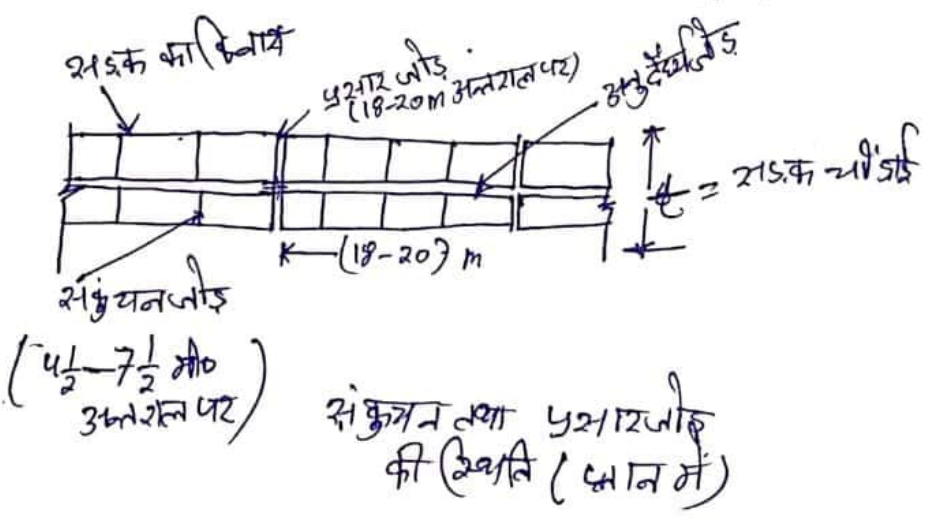 सड़क का किनारा
प्रसार जोड़
(18-20m अन्तराल पर)
अनुदैर्ध्य जोड़
= सड़क चौड़ाई
(18-20) m
संकुचन जोड़
(4 1/2 – 7 1/2 मी०
अन्तराल पर)
संकुचन तथा प्रसार जोड़
की स्थिति (प्लान में)